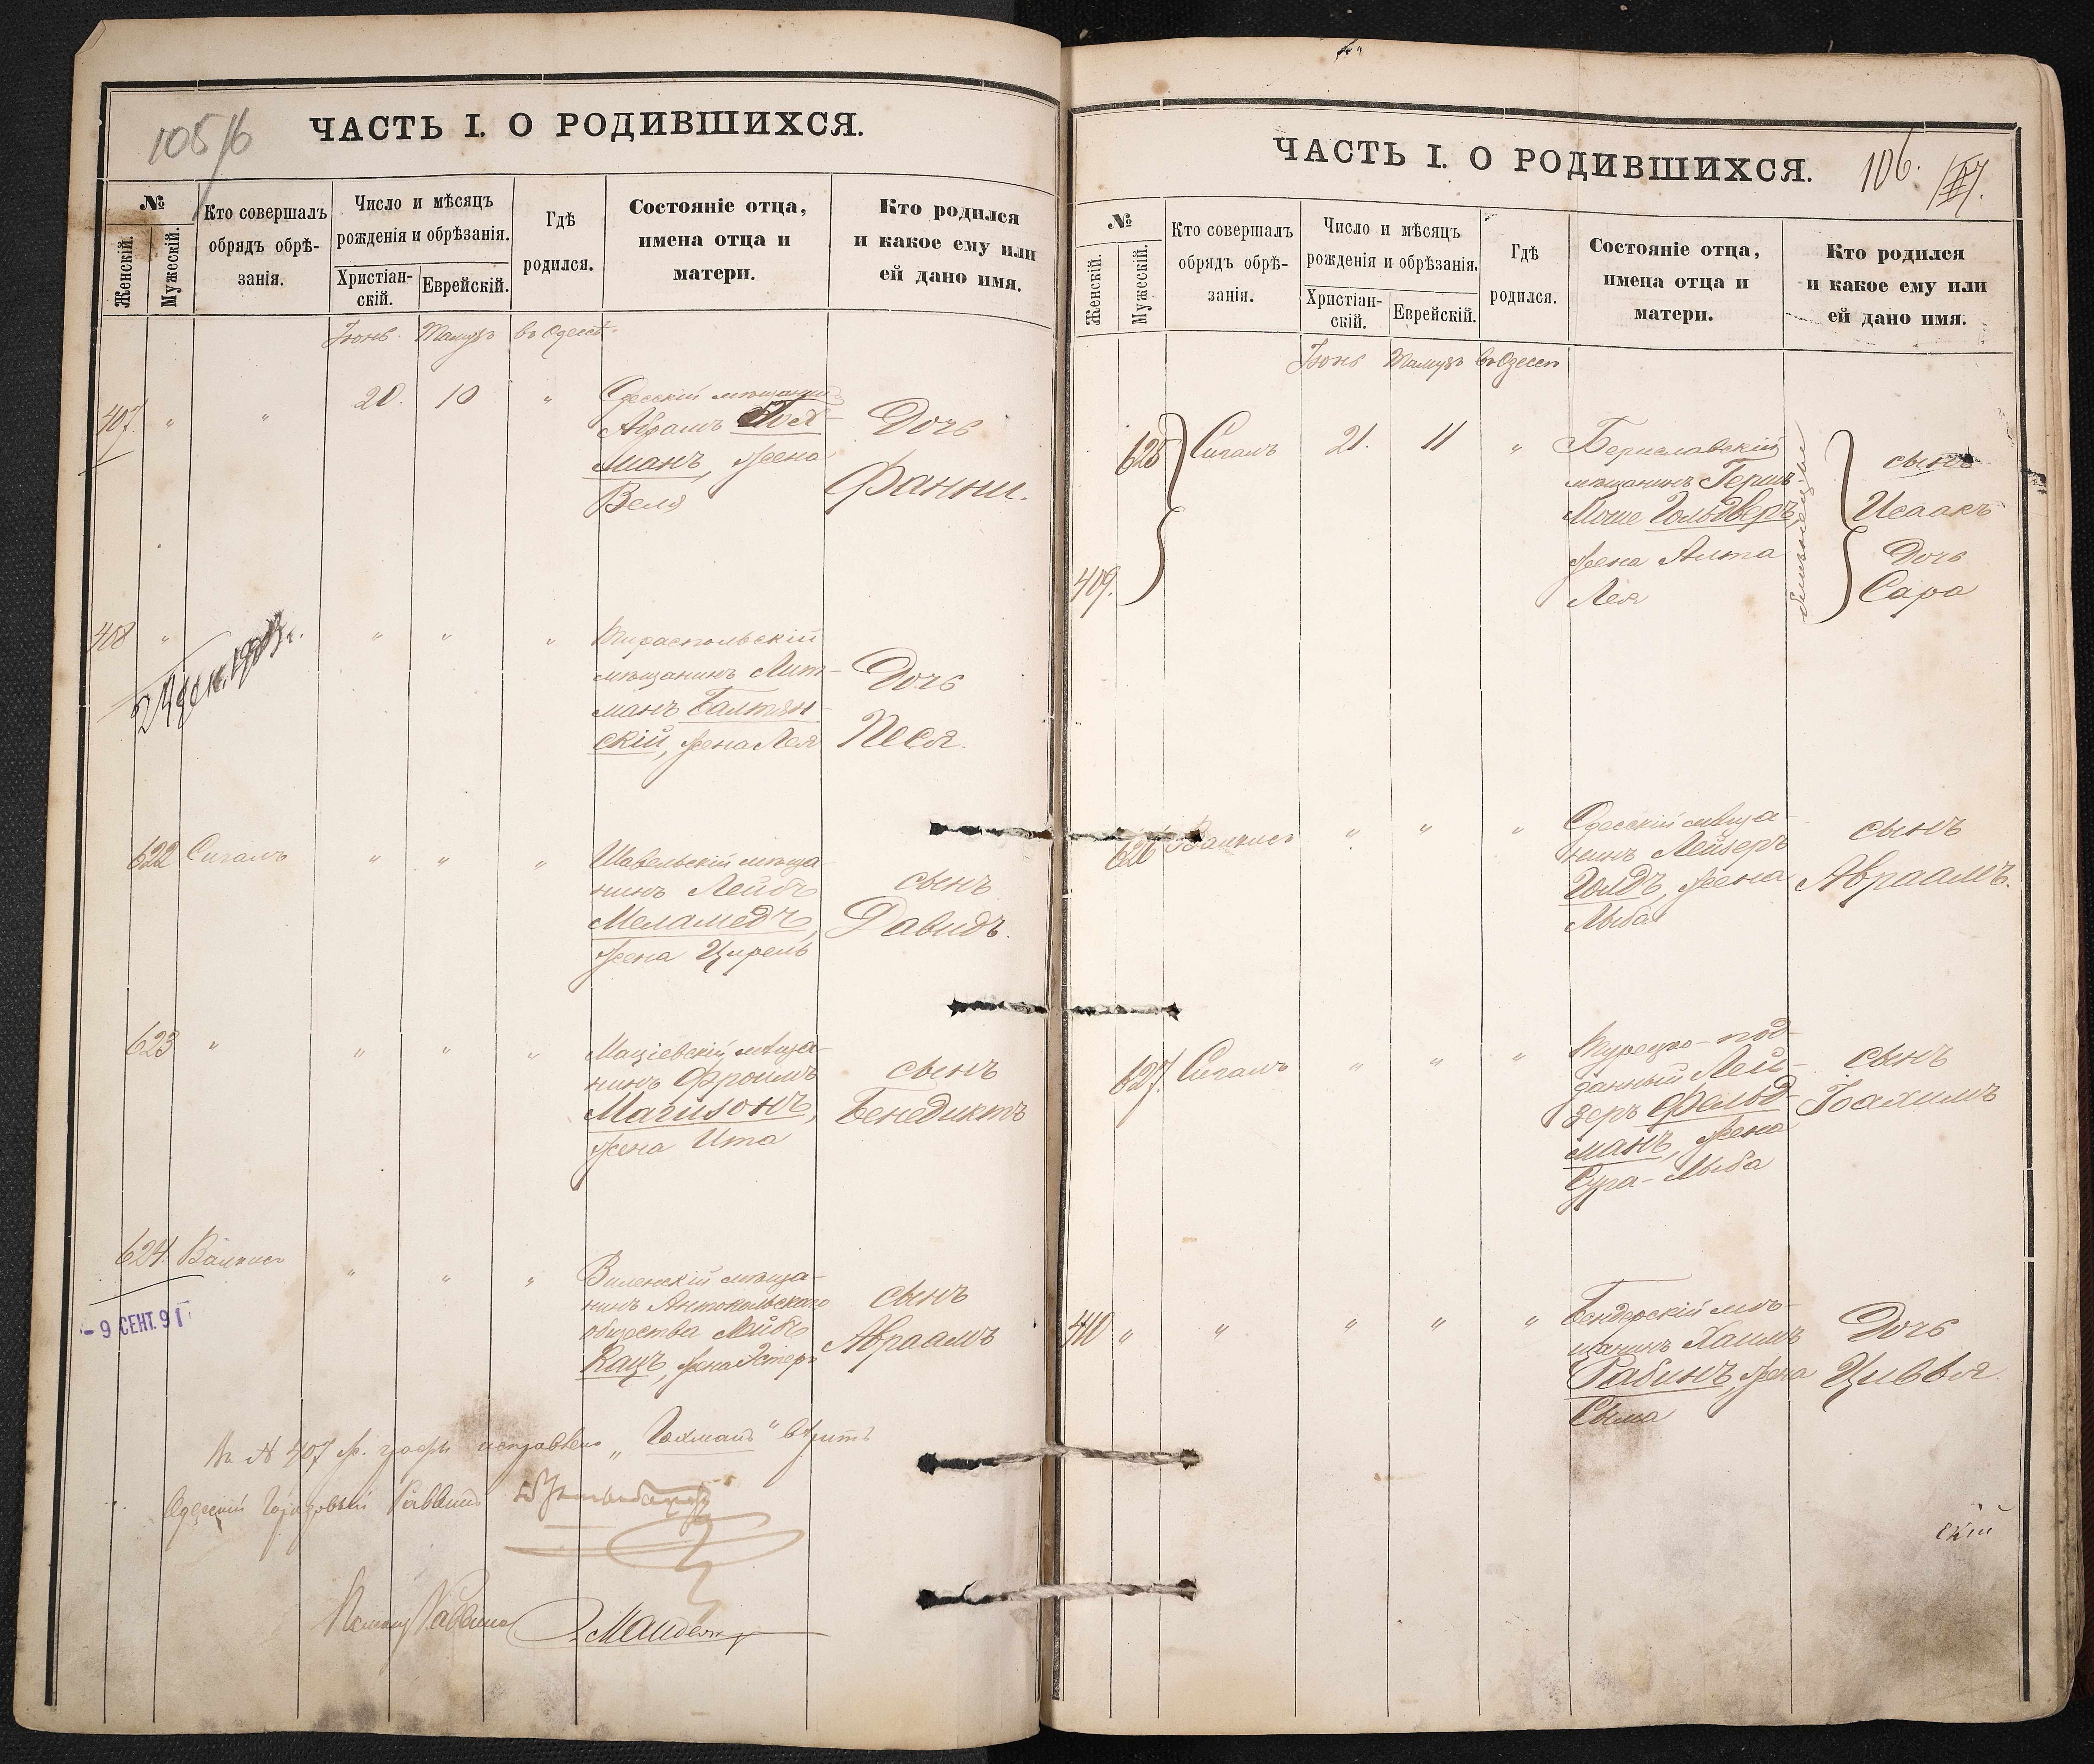 105/6
ЧАСТЬ I. О РОДИВШИХСЯ.
№
Женскій.
Мужескій.
Кто совершалъ
обрядъ обрѣ-
занія.
Число и мѣсяцъ
рожденія и обрѣзанія.
Христіан-
скій.
Еврейскій.
Гдѣ
родился.
Состояніе отца,
имена отца и
матери.
Кто родился
и какое ему или
ей дано имя.
Іюнь Тамузъ въ Одессѣ
407 " " 20. 10 "
Одесскій мѣщанинъ
Абрамъ Гох-
манъ, жена
Веля
Дочь
Фанни.
408 " " " "
24 дек. 1903 г.
Тираспольскій
мѣщанинъ Лит-
манъ Балтян-
скій, жена Лея
Дочь
Песя.
622 Сигалъ " " "
Шавельскій мѣща-
нинъ Лейбъ
Меламедъ,
жена Цирель
сынъ
Давидъ.
623 " " " "
Маціевскій мѣща-
нинъ Фроимъ
Магизонъ,
жена Ита
сынъ
Бенедиктъ
624. Валкисъ " " "
- 9 СЕНТ. 91
Виленскій мѣща-
нинъ Антокольскаго
общества Лейбъ
Кацъ, жена Эстеръ
сынъ
Авраамъ
На № 407 ж. графы исправлено „Гохманъ" вѣритъ
Одесскій Городовый Раввинъ
Раввина
106.
ЧАСТЬ I. О РОДИВШИХСЯ.
№
Женскій.
Мужескій.
Кто совершалъ
обрядъ обрѣ-
занія.
Число и мѣсяцъ
рожденія и обрѣзанія.
Христіан-
скій.
Еврейскій.
Гдѣ
родился.
Состояніе отца,
имена отца и
матери.
Кто родился
и какое ему или
ей дано имя.
Іюнь Тамузъ въ Одессѣ
625 Сигалъ 21. 11 "
409.
Бериславскій
мѣщанинъ Гершъ
Моше Гольдверъ
жена Алта
Лея
близнецы
сынъ
Исаакъ
Дочь
Сара
626 Валкисъ " " "
Одесскій мѣща-
нинъ Лейзеръ
Голдъ, жена
Лыба
сынъ
Авраамъ.
627. Сигалъ " " "
Турецко-под-
данный Лей-
зеръ Фельд-
манъ, жена
Сура-Лыба
сынъ
Іоахимъ
410 " " " " "
Бендерскій мѣ-
щанинъ Хаимъ
Рабинъ, жена
Сыма
Дочь
Цивья.
скій